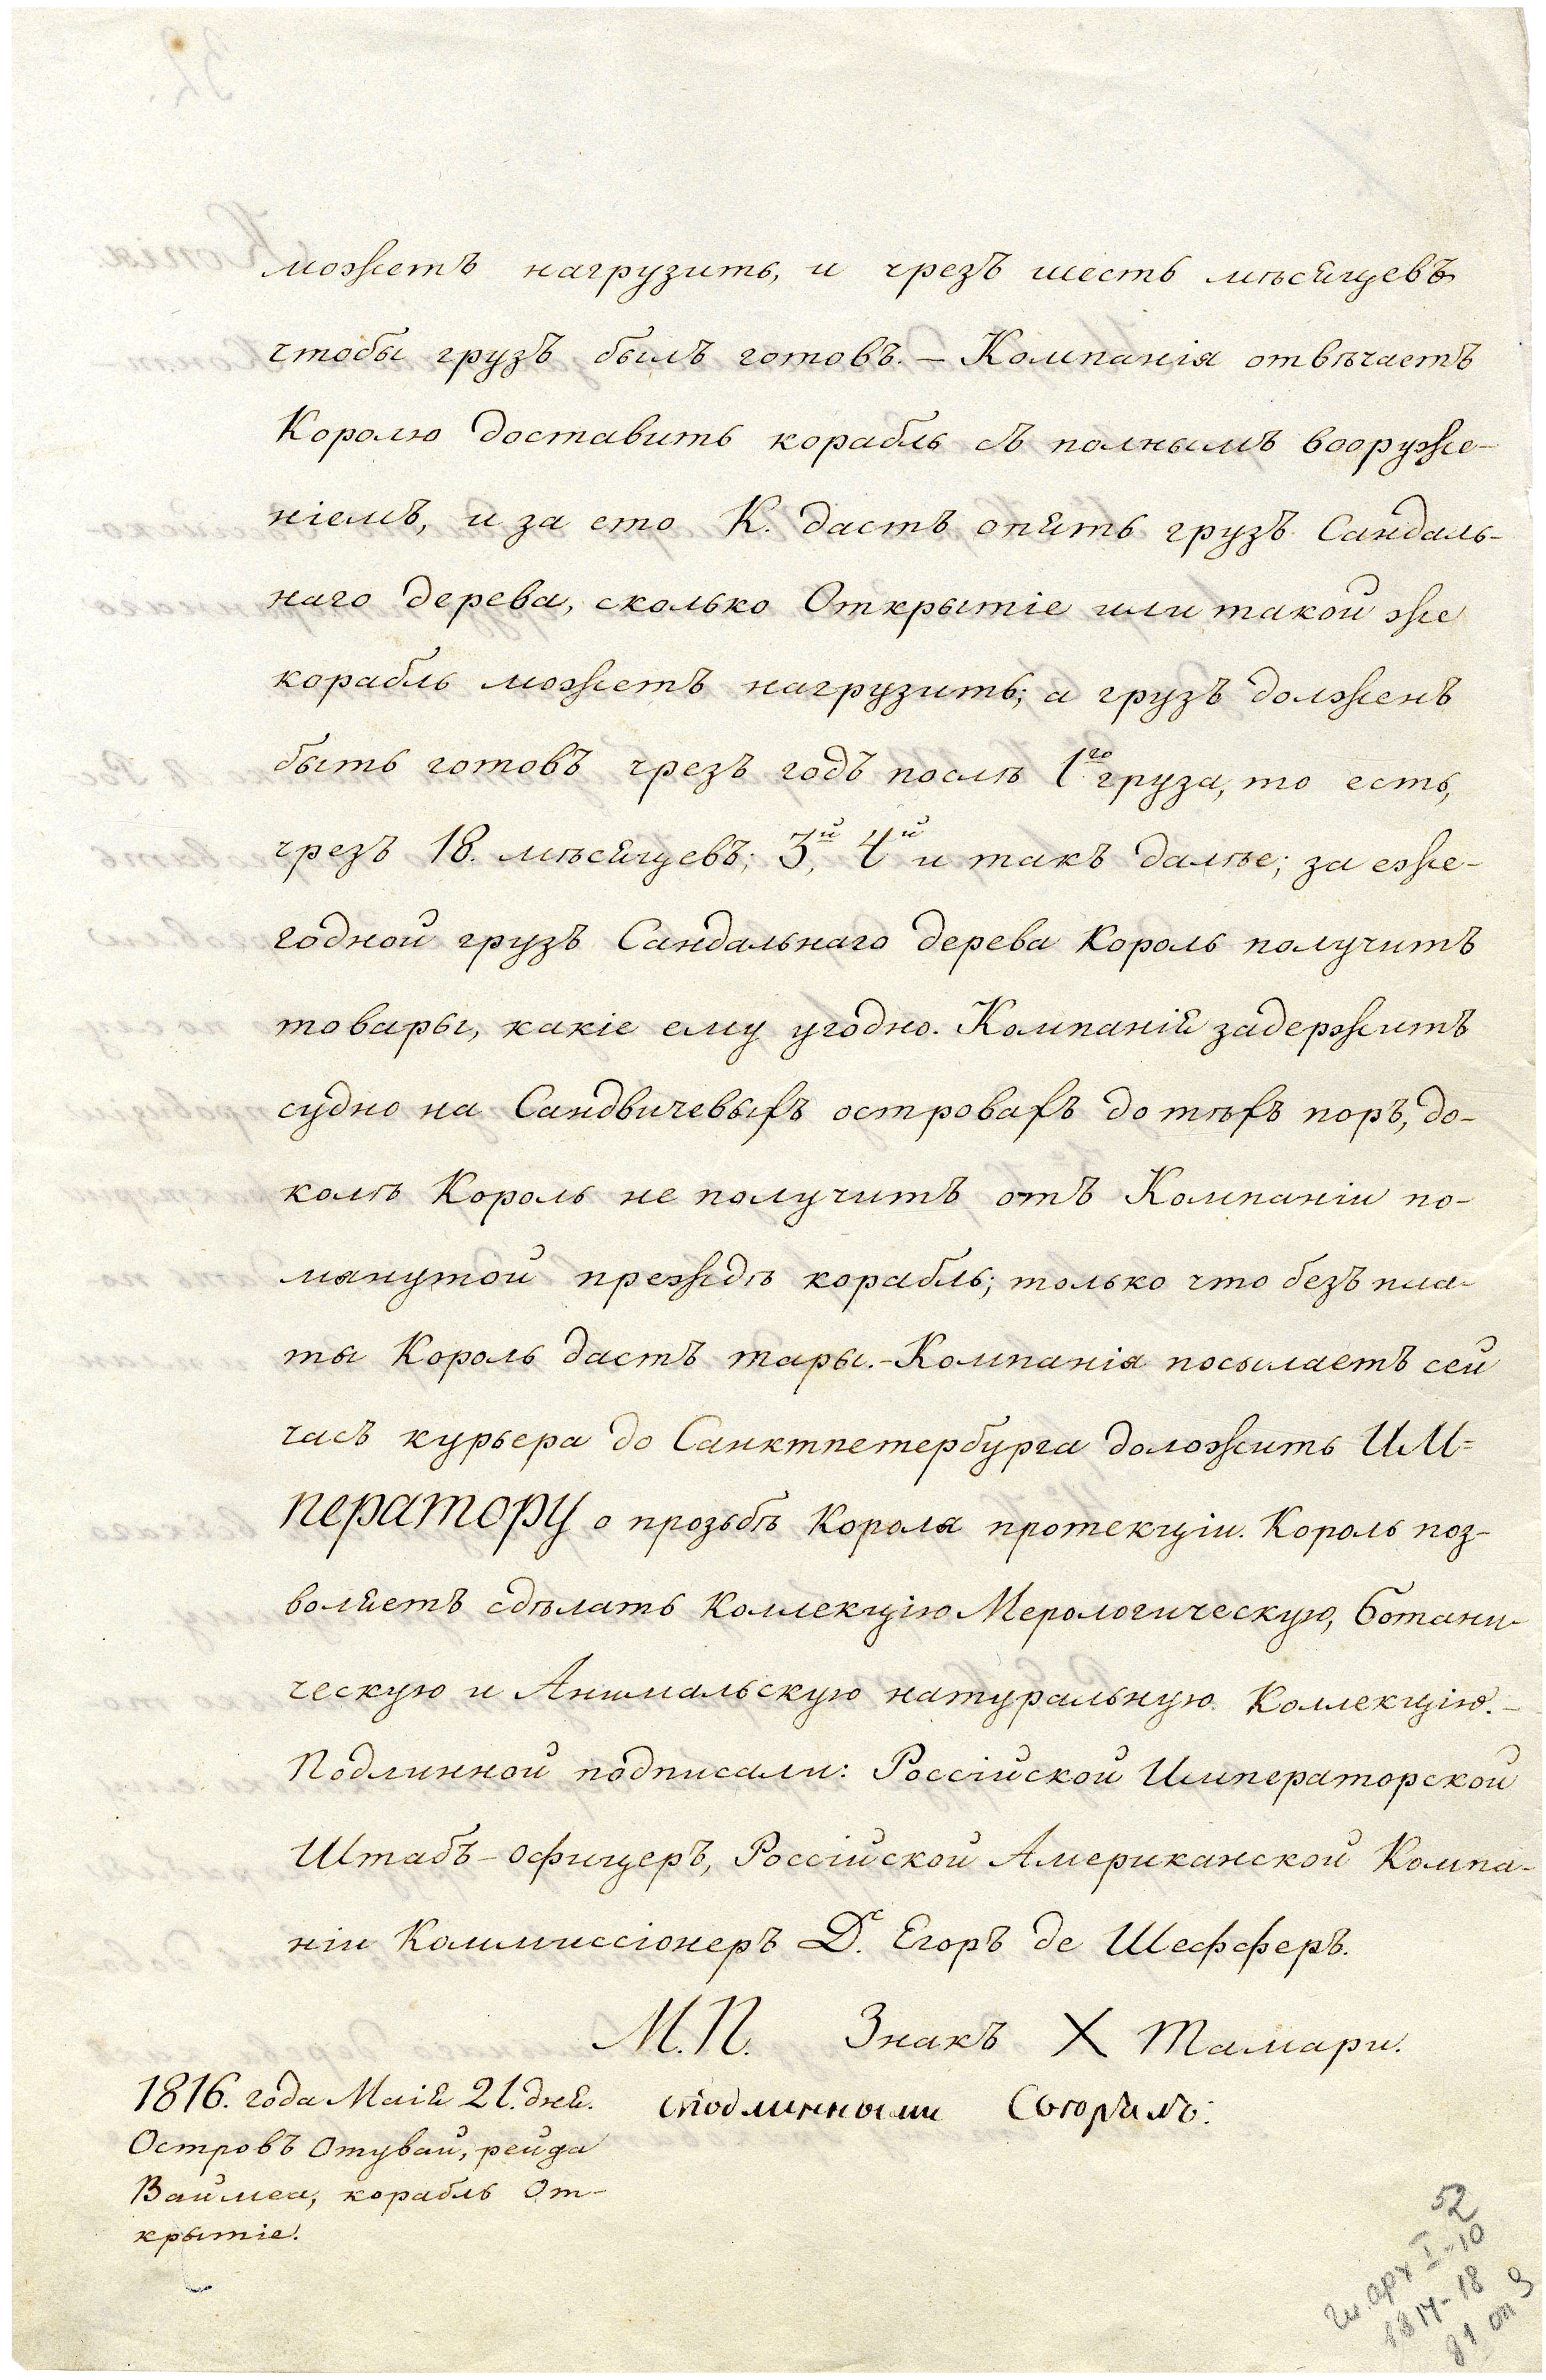 можетъ нагрузить, и чрезъ шесть мѣсяцевъ
чтобы грузъ былъ готовъ. – Компанія отвѣчаетъ
Королю доставить корабль съ полнымъ вооруже-
ніемъ, и за ето К. дастъ опять грузъ Сандаль-
наго дерева, сколько Открытіе или такой же
корабль можетъ нагрузить; а грузъ долженъ
быть готовъ чрезъ годъ послѣ 1го груза, то есть,
чрезъ 18. мѣсяцевъ; 3й, 4й и такъ далѣе; за еже-
годной грузъ Сандальнаго дерева Король получитъ
товары, какіе ему угодно. Компанія задержитъ
судно на Сандвичевыхъ островахъ до тѣхъ поръ, до-
колѣ Король не получитъ отъ Компаніи по-
мянутой прежде корабль; только что безъ пла-
ты Король дастъ тары. – Компанія посылаетъ сей
часъ курьера до Санктпетербурга доложить ИМ=
ператору о прозьбѣ Короля протекціи. Король поз-
воляетъ сдѣлать Коллекцію Мерологическую, ботани-
ческую и Анимальскую натуральную Коллекцію. –
Подлинной подписали: Россійской Императорской
Штабъ-офицеръ, Россійской Американской Компа-
ніи Коммиссіонеръ Д. Егоръ де Шефферъ.
М.П. Знакъ X Тамари.
1816. года Маія 21. дня.
Островъ Отувай, рейда
Ваймеа, корабль От-
крытіе.
сподлинными
52
Гл. арх I-10
1817-18